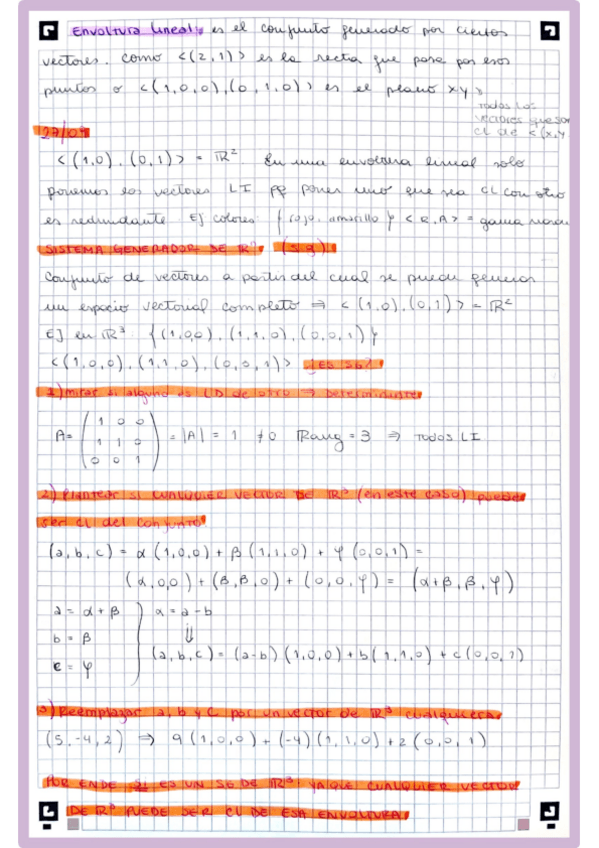 Envoltura lineal: es el conjunto generado por ciertos
vectores. Como <(2,1)> es la recta que pasa por esos
puntos o <(1,0,0),(0,1,0)> es el plano xy >
todos los
vectores que son
CL de <(x,y
27/09
<(1,0),(0,1)> = ℝ². En una envoltura lineal solo
ponemos los vectores LI pq poner uno que sea CL con otro
es redundante. Ej colores: {rojo, amarillo} <R,A> = gama
SISTEMA GENERADOR DE ℝ² (sg)
Conjunto de vectores a partir del cual se puede generar
un espacio vectorial completo ⇒ <(1,0),(0,1)> = ℝ²
EJ en ℝ³: {(1,0,0),(1,1,0),(0,0,1)}
<(1,0,0),(1,1,0),(0,0,1)> ¿ES SG?
1) mirar si alguno es LD de otro ⇒ Determinante
A= (1 0 0
1 1 0
0 0 1) = |A| = 1 ≠0 Rang = 3 ⇒ TODOS LI
2) Plantear SI CUALQUIER VECTOR DE ℝ³ (en este caso) puede
ser CL del conjunto
(a,b,c) = α(1,0,0) + β(1,1,0) + φ(0,0,1) =
(α,0,0) + (β,β,0) + (0,0,φ) = (α+β,β,φ)
a = α+β } α = a-b
b = β ⇓
c = φ (a,b,c) = (a-b)(1,0,0)+b(1,1,0)+c(0,0,1)
3) Reemplazar a, b y c por un vector de ℝ³ cualquiera
(5,-4,2) ⇒ 9(1,0,0)+(-4)(1,1,0)+2(0,0,1)
POR ENDE SI ES UN SG DE ℝ³ YA QUE CUALQUIER VECTOR
DE ℝ³ PUEDE SER CL DE ESA ENVOLTURA